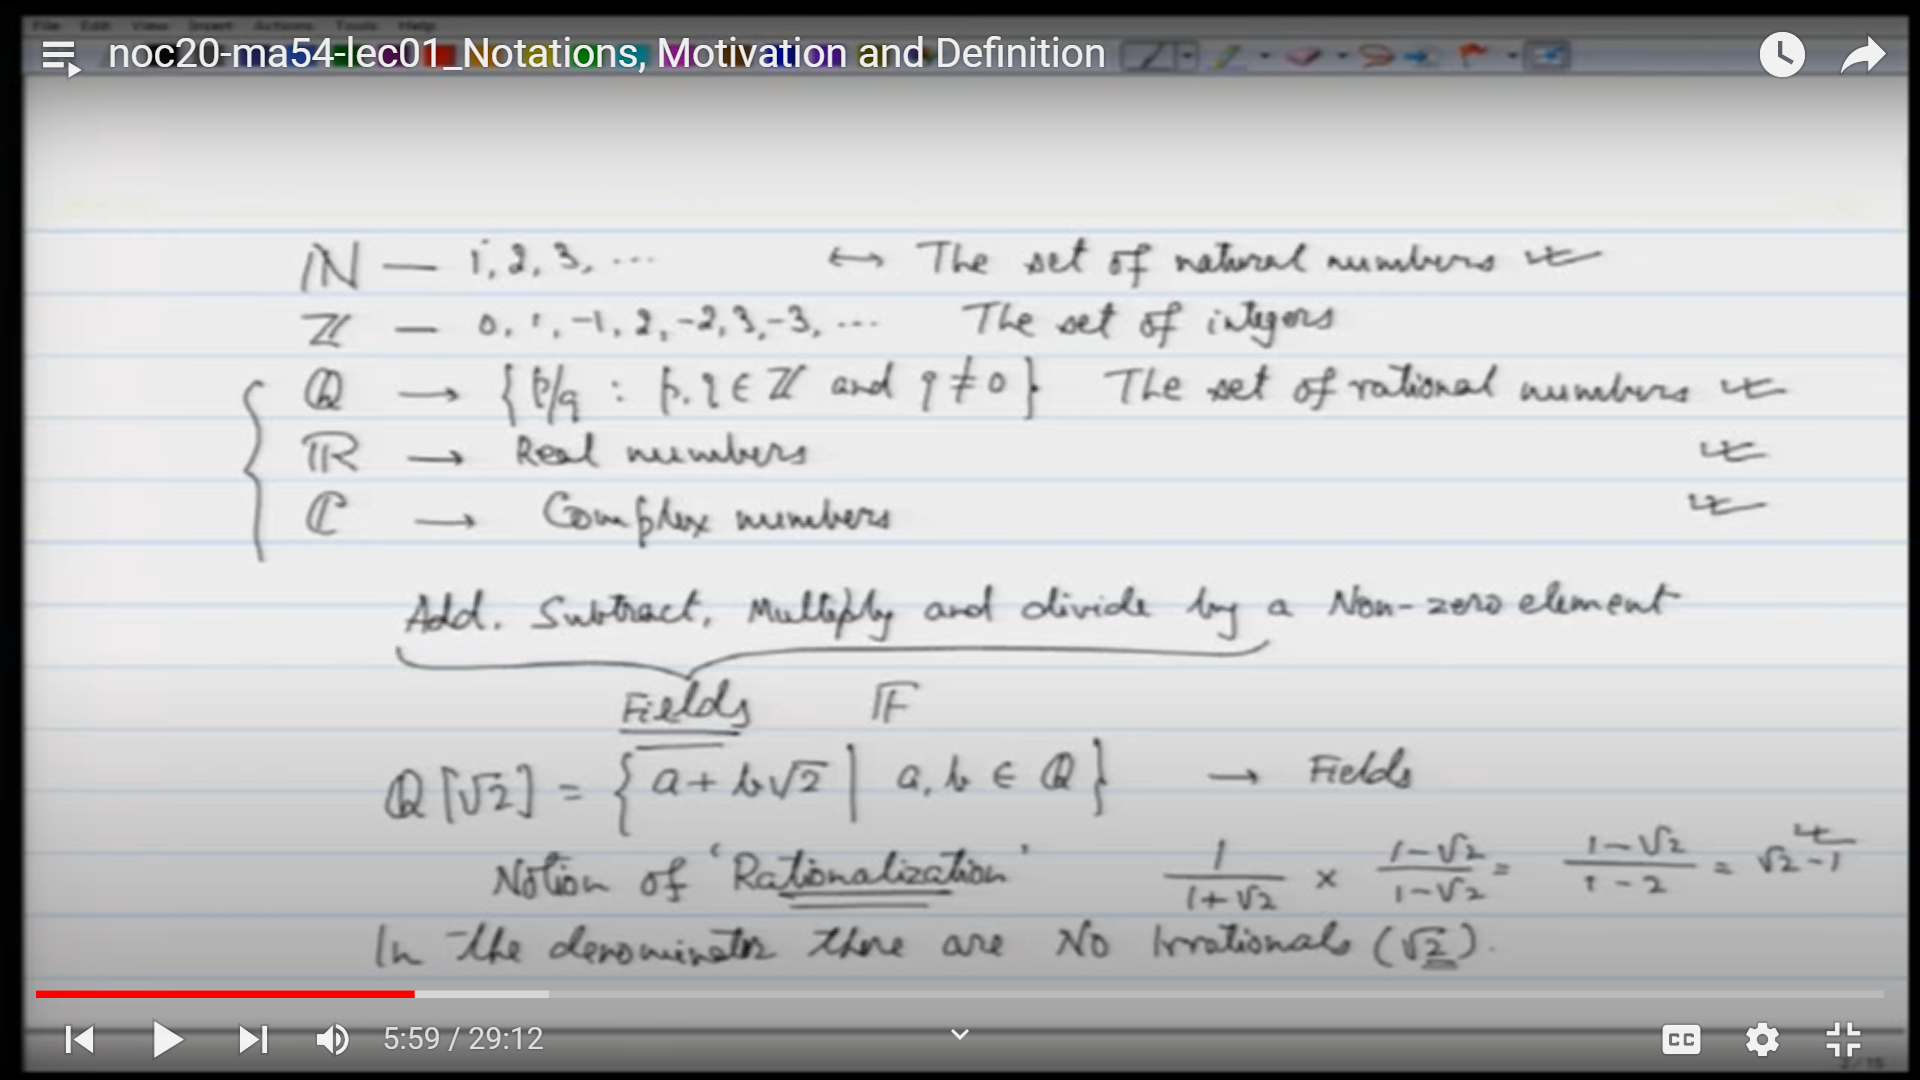 File Edit View Insert Actions Tools Help
noc20-ma54-lec01_Notations, Motivation and Definition
ℕ — 1, 2, 3, ... ↔ The set of natural numbers
ℤ — 0, 1, -1, 2, -2, 3, -3, ... The set of integers
ℚ → {p/q : p, q ∈ ℤ and q ≠ 0} The set of rational numbers
ℝ → Real numbers
ℂ → Complex numbers
Add, Subtract, Multiply and divide by a Non-zero element
Fields 𝔽
ℚ[√2] = {a + b√2 | a, b ∈ ℚ} → Fields
Notion of 'Rationalization' 1/(1+√2) × (1-√2)/(1-√2) = (1-√2)/(1-2) = √2-1
In the denominator there are No Irrationals (√2).
5:59 / 29:12
CC